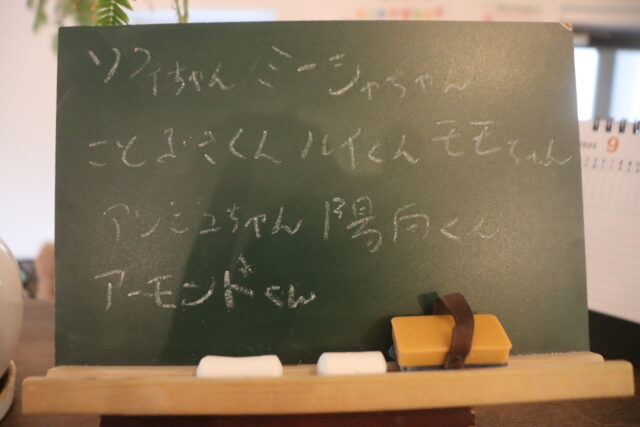 ソフィちゃん ミーシャちゃん
ことぶきくん ルイくん モモちゃん
アンジュちゃん 陽向くん
アーモンドくん
9